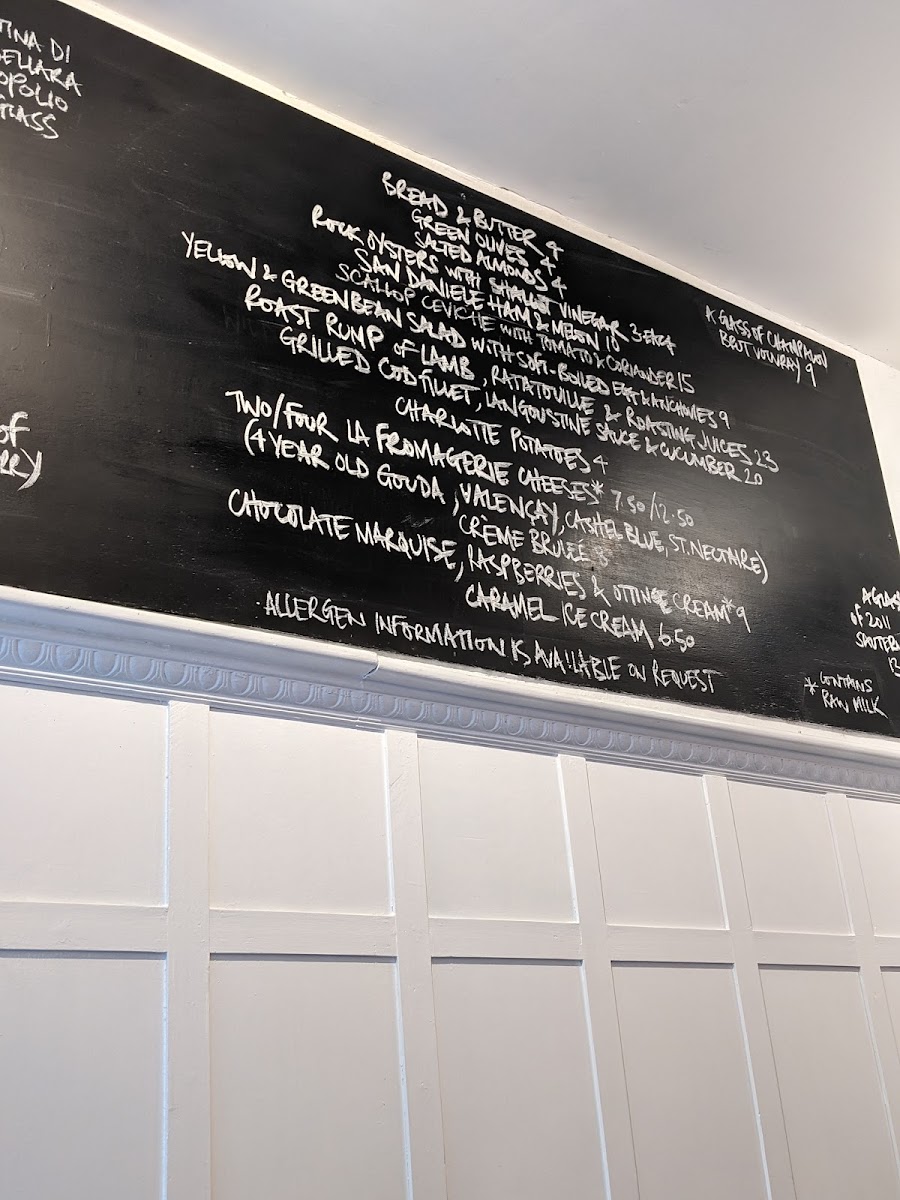 TINA DI
ELLARA
OPOLIO
GLASS
BREAD & BUTTER 4
GREEN OLIVES 4
SALTED ALMONDS 4
ROCK OYSTERS WITH SHALLOT VINEGAR 3 EACH
SAN DANIELE HAM & MELON 10
SCALLOP CEVICHE WITH TOMATO & CORIANDER 15
YELLOW & GREEN BEAN SALAD WITH SOFT-BOILED EGG & ANCHOVIES 9
ROAST RUMP OF LAMB, RATATOUILLE & ROASTING JUICES 23
GRILLED COD FILLET, LANGOUSTINE SAUCE & CUCUMBER 20
CHARLOTTE POTATOES 4
TWO/FOUR LA FROMAGERIE CHEESES* 7.50/12.50
(4 YEAR OLD GOUDA, VALENÇAY, CASHEL BLUE, ST. NECTAIRE)
CRÈME BRULÉE 8
CHOCOLATE MARQUISE, RASPBERRIES & CREAM* 9
CARAMEL ICE CREAM 6.50
ALLERGEN INFORMATION IS AVAILABLE ON REQUEST
A GLASS OF
BRUT VOUVRAY 9
OF
RRY)
A GLAS
OF 2011
SAUTERN
13
* CONTAINS
RAW MILK